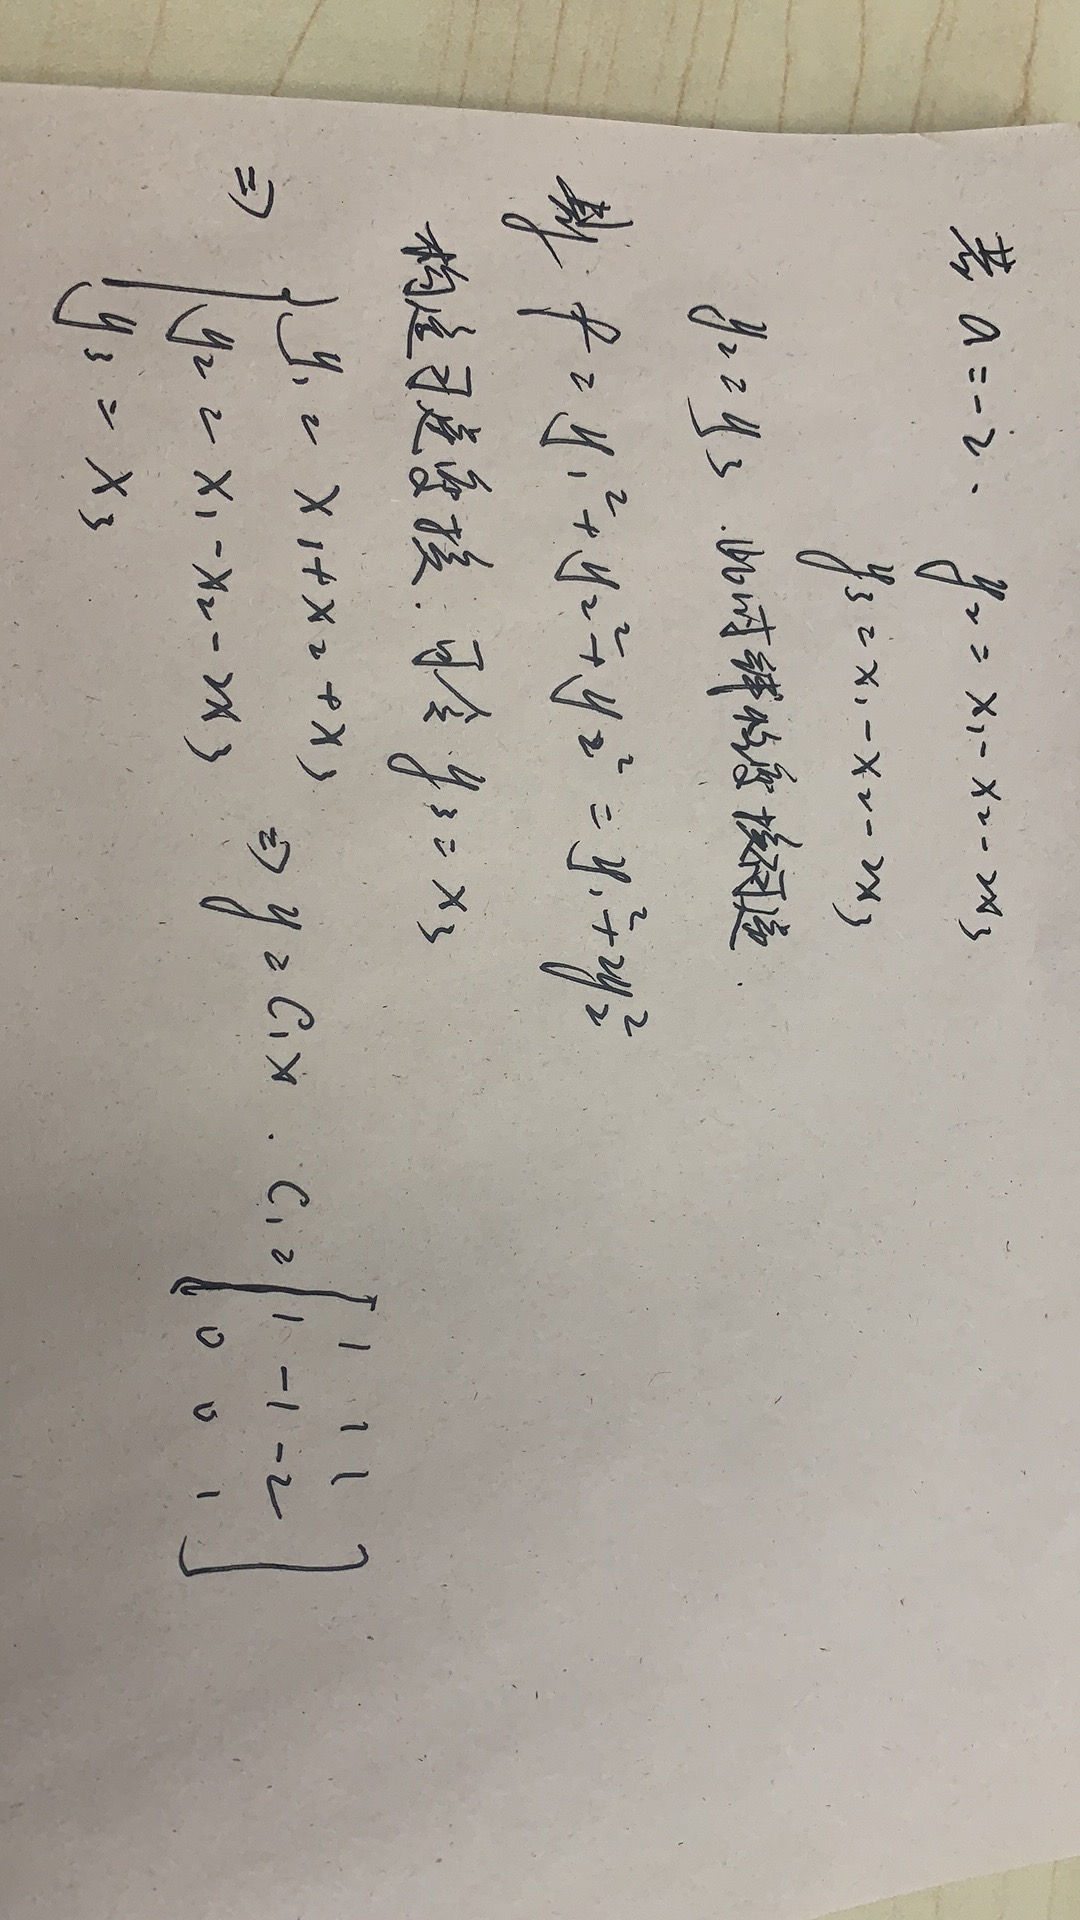 若 a=-2. y₂ = x₁-x₂-2x₃
y₃ = x₁-x₂-2x₃
y₂ = y₃. 此时线性变换不可逆.
f = y₁²+y₂²+y₂² = y₁²+2y₂²
构造可逆变换. 可令 y₃ = x₃
⇒ { y₁ = x₁+x₂+x₃
y₂ = x₁-x₂-2x₃
y₃ = x₃
⇒ y = C₁x. C₁ = [ 1 1 1
1 -1 -2
0 0 1 ]